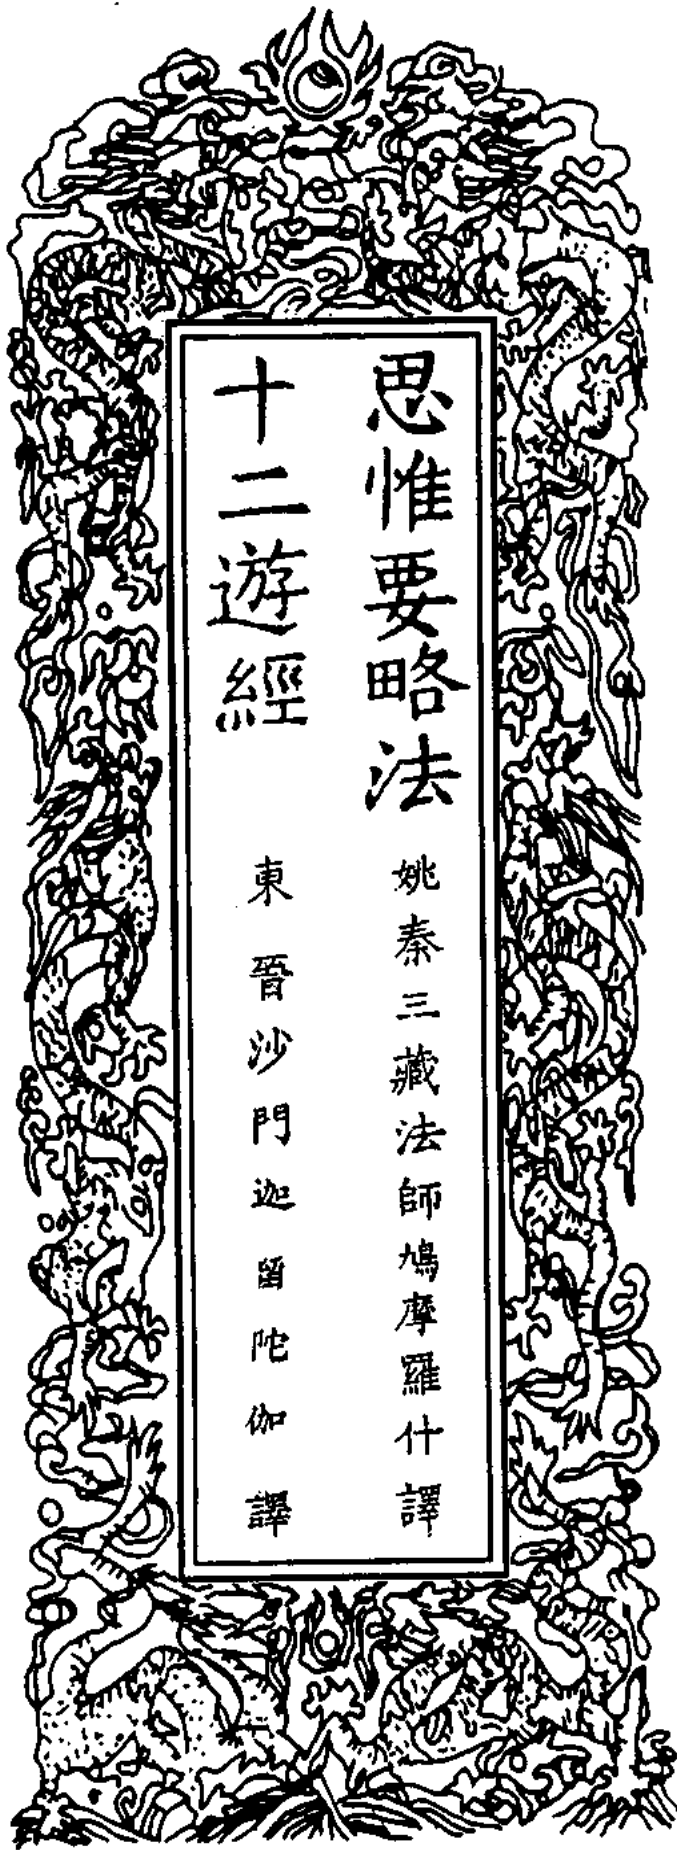 思惟要略法 姚秦三藏法師鳩摩羅什譯
十二遊經 東晉沙門迦留陀伽譯